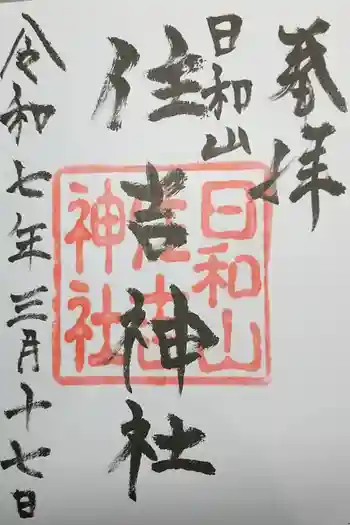 奉拝
日和山
住吉神社
令和七年三月十七日
日和山
住吉
神社